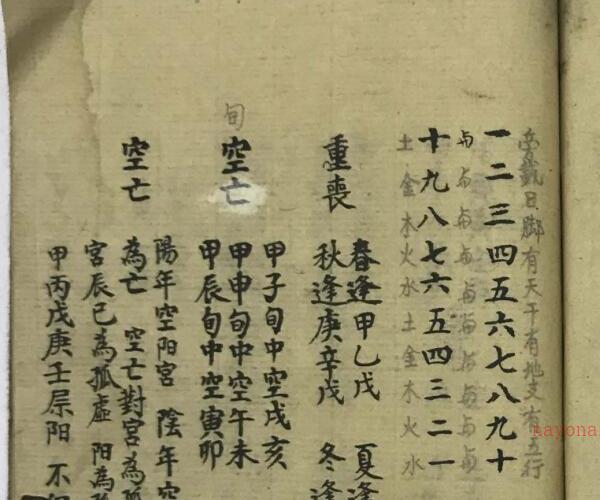 旁載日脚有天干有地支有五行
一二三四五六七八九十
与与与与与与与与与与
十九八七六五四三二一
土金木火水土金木火水
重喪
春逢甲乙戊 夏逢
秋逢庚辛戊 冬逢
旬
空亡
甲子旬中空戌亥
甲申旬中空午未
甲辰旬中空寅卯
空亡
陽年空陽宮 陰年空
為亡 空亡對宮為孤
宮辰巳為孤虛 陽為孤
甲丙戊庚壬屬陽 不
nayona